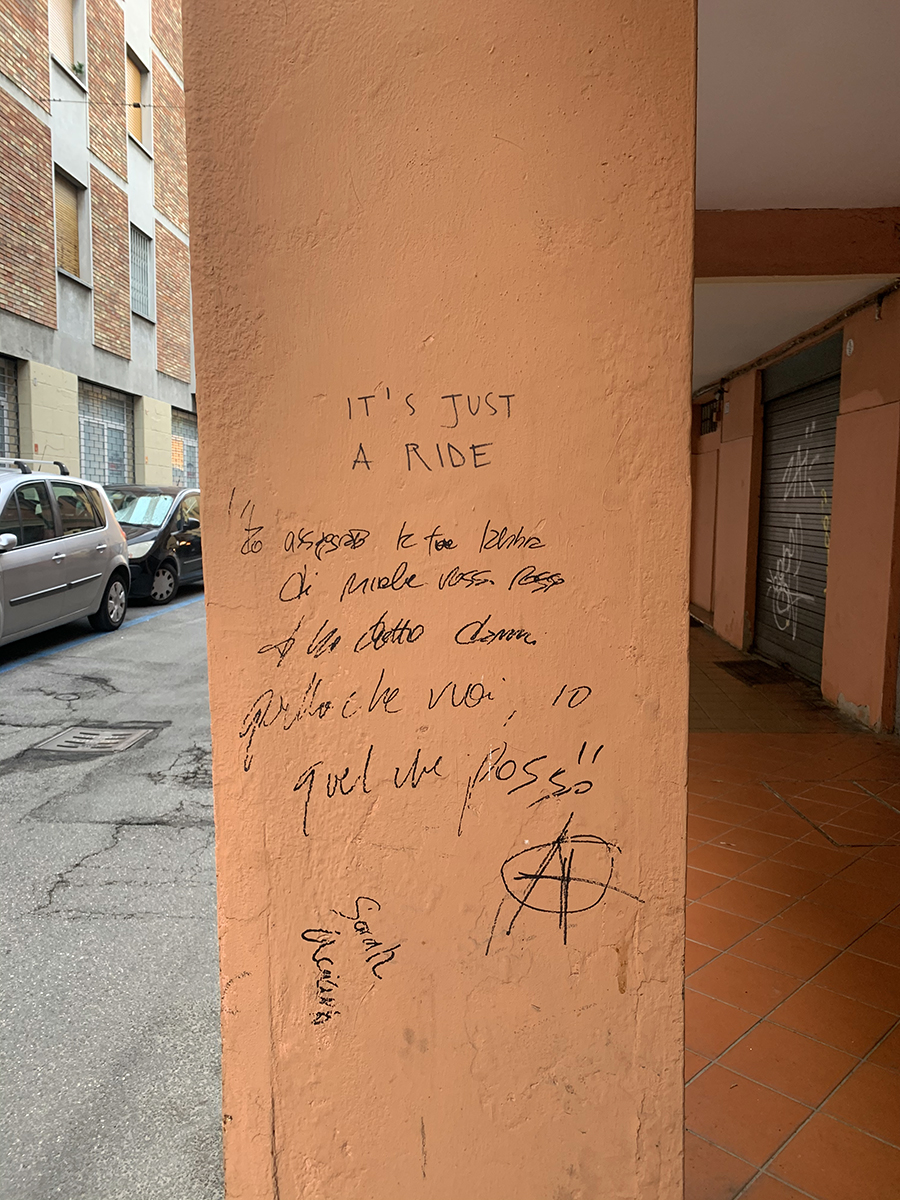 IT'S JUST
A RIDE
"Io assaporo le tue labbra
di miele rosso rosso
ti ho detto dammi
quello che vuoi, io
quel che posso"
A
Sarah